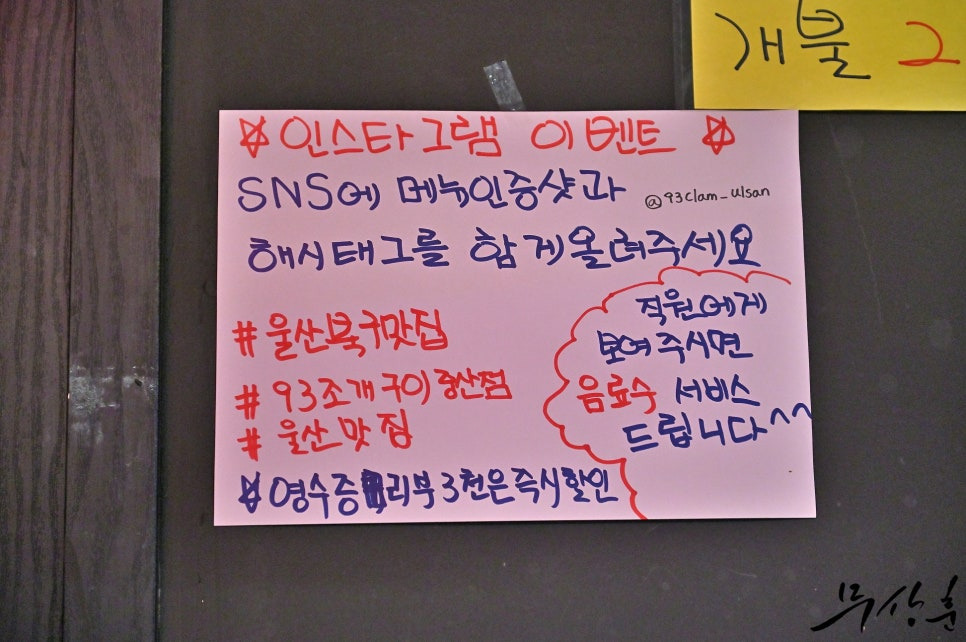 개불 2
☆인스타그램 이벤트 ☆
SNS에 메뉴인증샷과 @93clam_ulsan
해시태그를 함께올려주세요
#울산북구맛집
#93조개구이 중산점
#울산맛집
☆영수증리뷰 3천은즉시할인
직원에게
보여주시면
음료수 서비스
드립니다^^